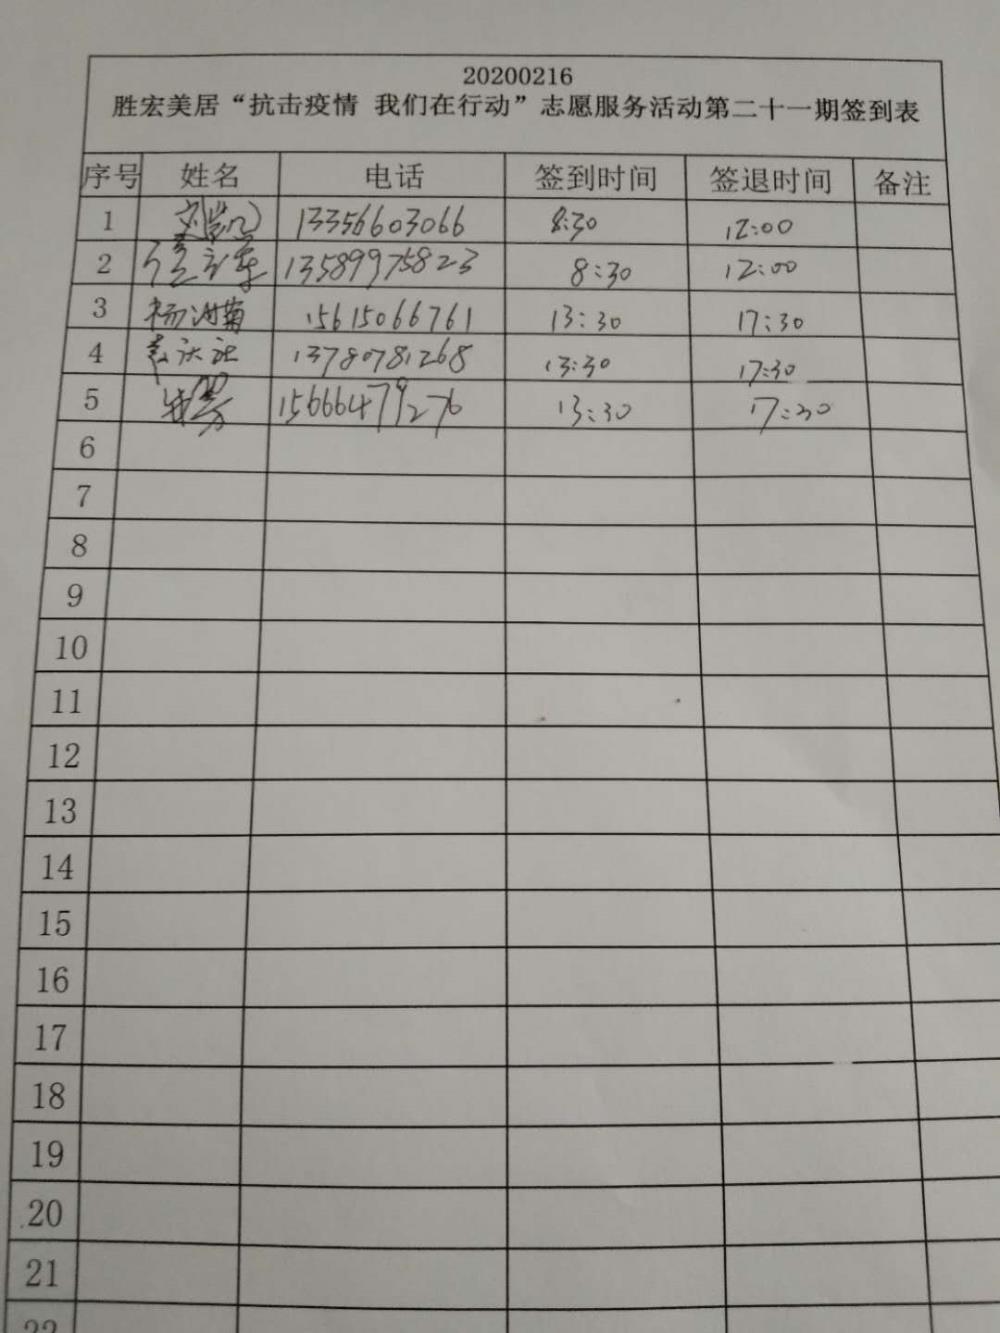 20200216
胜宏美居“抗击疫情 我们在行动”志愿服务活动第二十一期签到表
序号 姓名 电话 签到时间 签退时间 备注
1 13356603066 8:30 12:00
2 13589975823 8:30 12:00
3 杨洪菊 15615066761 13:30 17:30
4 13780781268 13:30 17:30
5 15666479276 13:30 17:30
6
7
8
9
10
11
12
13
14
15
16
17
18
19
20
21
22